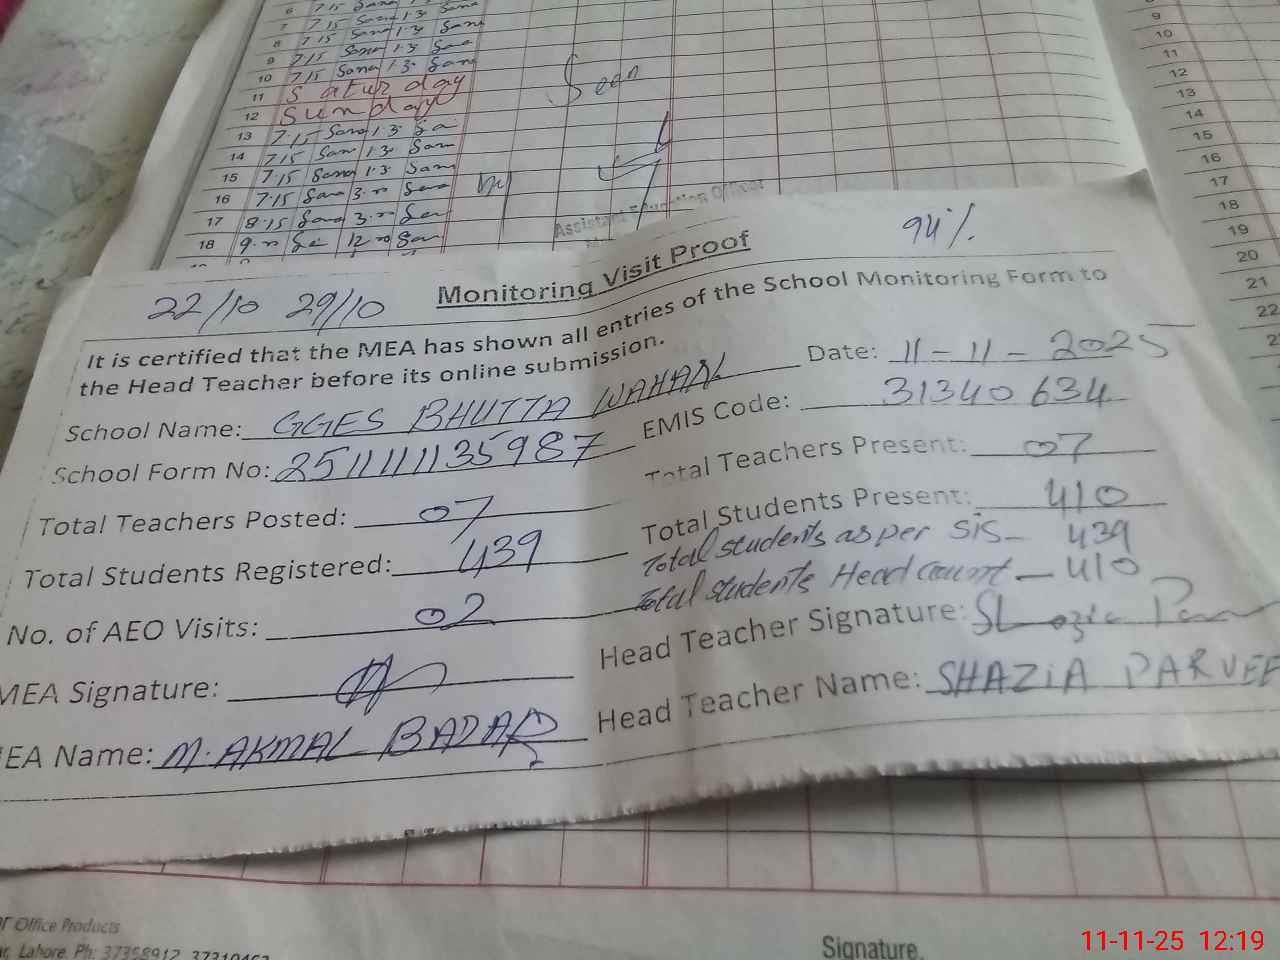 6 7.15 Sana 1.3 Sana
7 7.15 Sana 1.3 Sana
8 7.15 Sana 1.3 Sana
9 7.15 Sana 1.3 Sana
10 7.15 Sana 1.3 Sana
11 Saturday
12 Sunday
13 7.15 Sana 1.3 Sa
14 7.15 Sana 1.3 Sana
15 7.15 Sana 1.3 Sana
16 7.15 Sana 3.
17 8.15 Sana 3.
18 9. 12.
Seen
Assistant Education Officer
9
10
11
12
13
14
15
16
17
18
19
20
21
22
94%
22/10 29/10
Monitoring Visit Proof
It is certified that the MEA has shown all entries of the School Monitoring Form to
the Head Teacher before its online submission.
Date: 11-11-2025
School Name: GGES BHUTTA WAHAN
EMIS Code: 31340634
School Form No: 251111135987
Total Teachers Present: 07
Total Teachers Posted: 07
Total Students Present: 410
Total Students Registered: 439
Total students as per SIS- 439
Total students Head Count - 410
No. of AEO Visits: 02
Head Teacher Signature: Shazia
MEA Signature:
Head Teacher Name: SHAZIA PARVEE
EA Name: M. AKMAL BADAR
Office Products
Lahore. Ph: 37356912
Signature
11-11-25 12:19